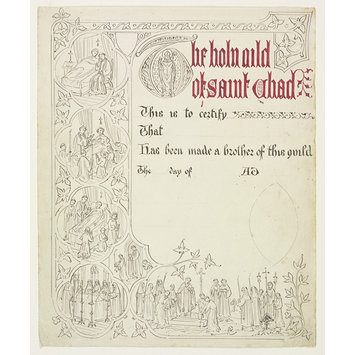 The holy gild
of saint Chad
This is to certify
That
Has been made a brother of this guild
The day of AD